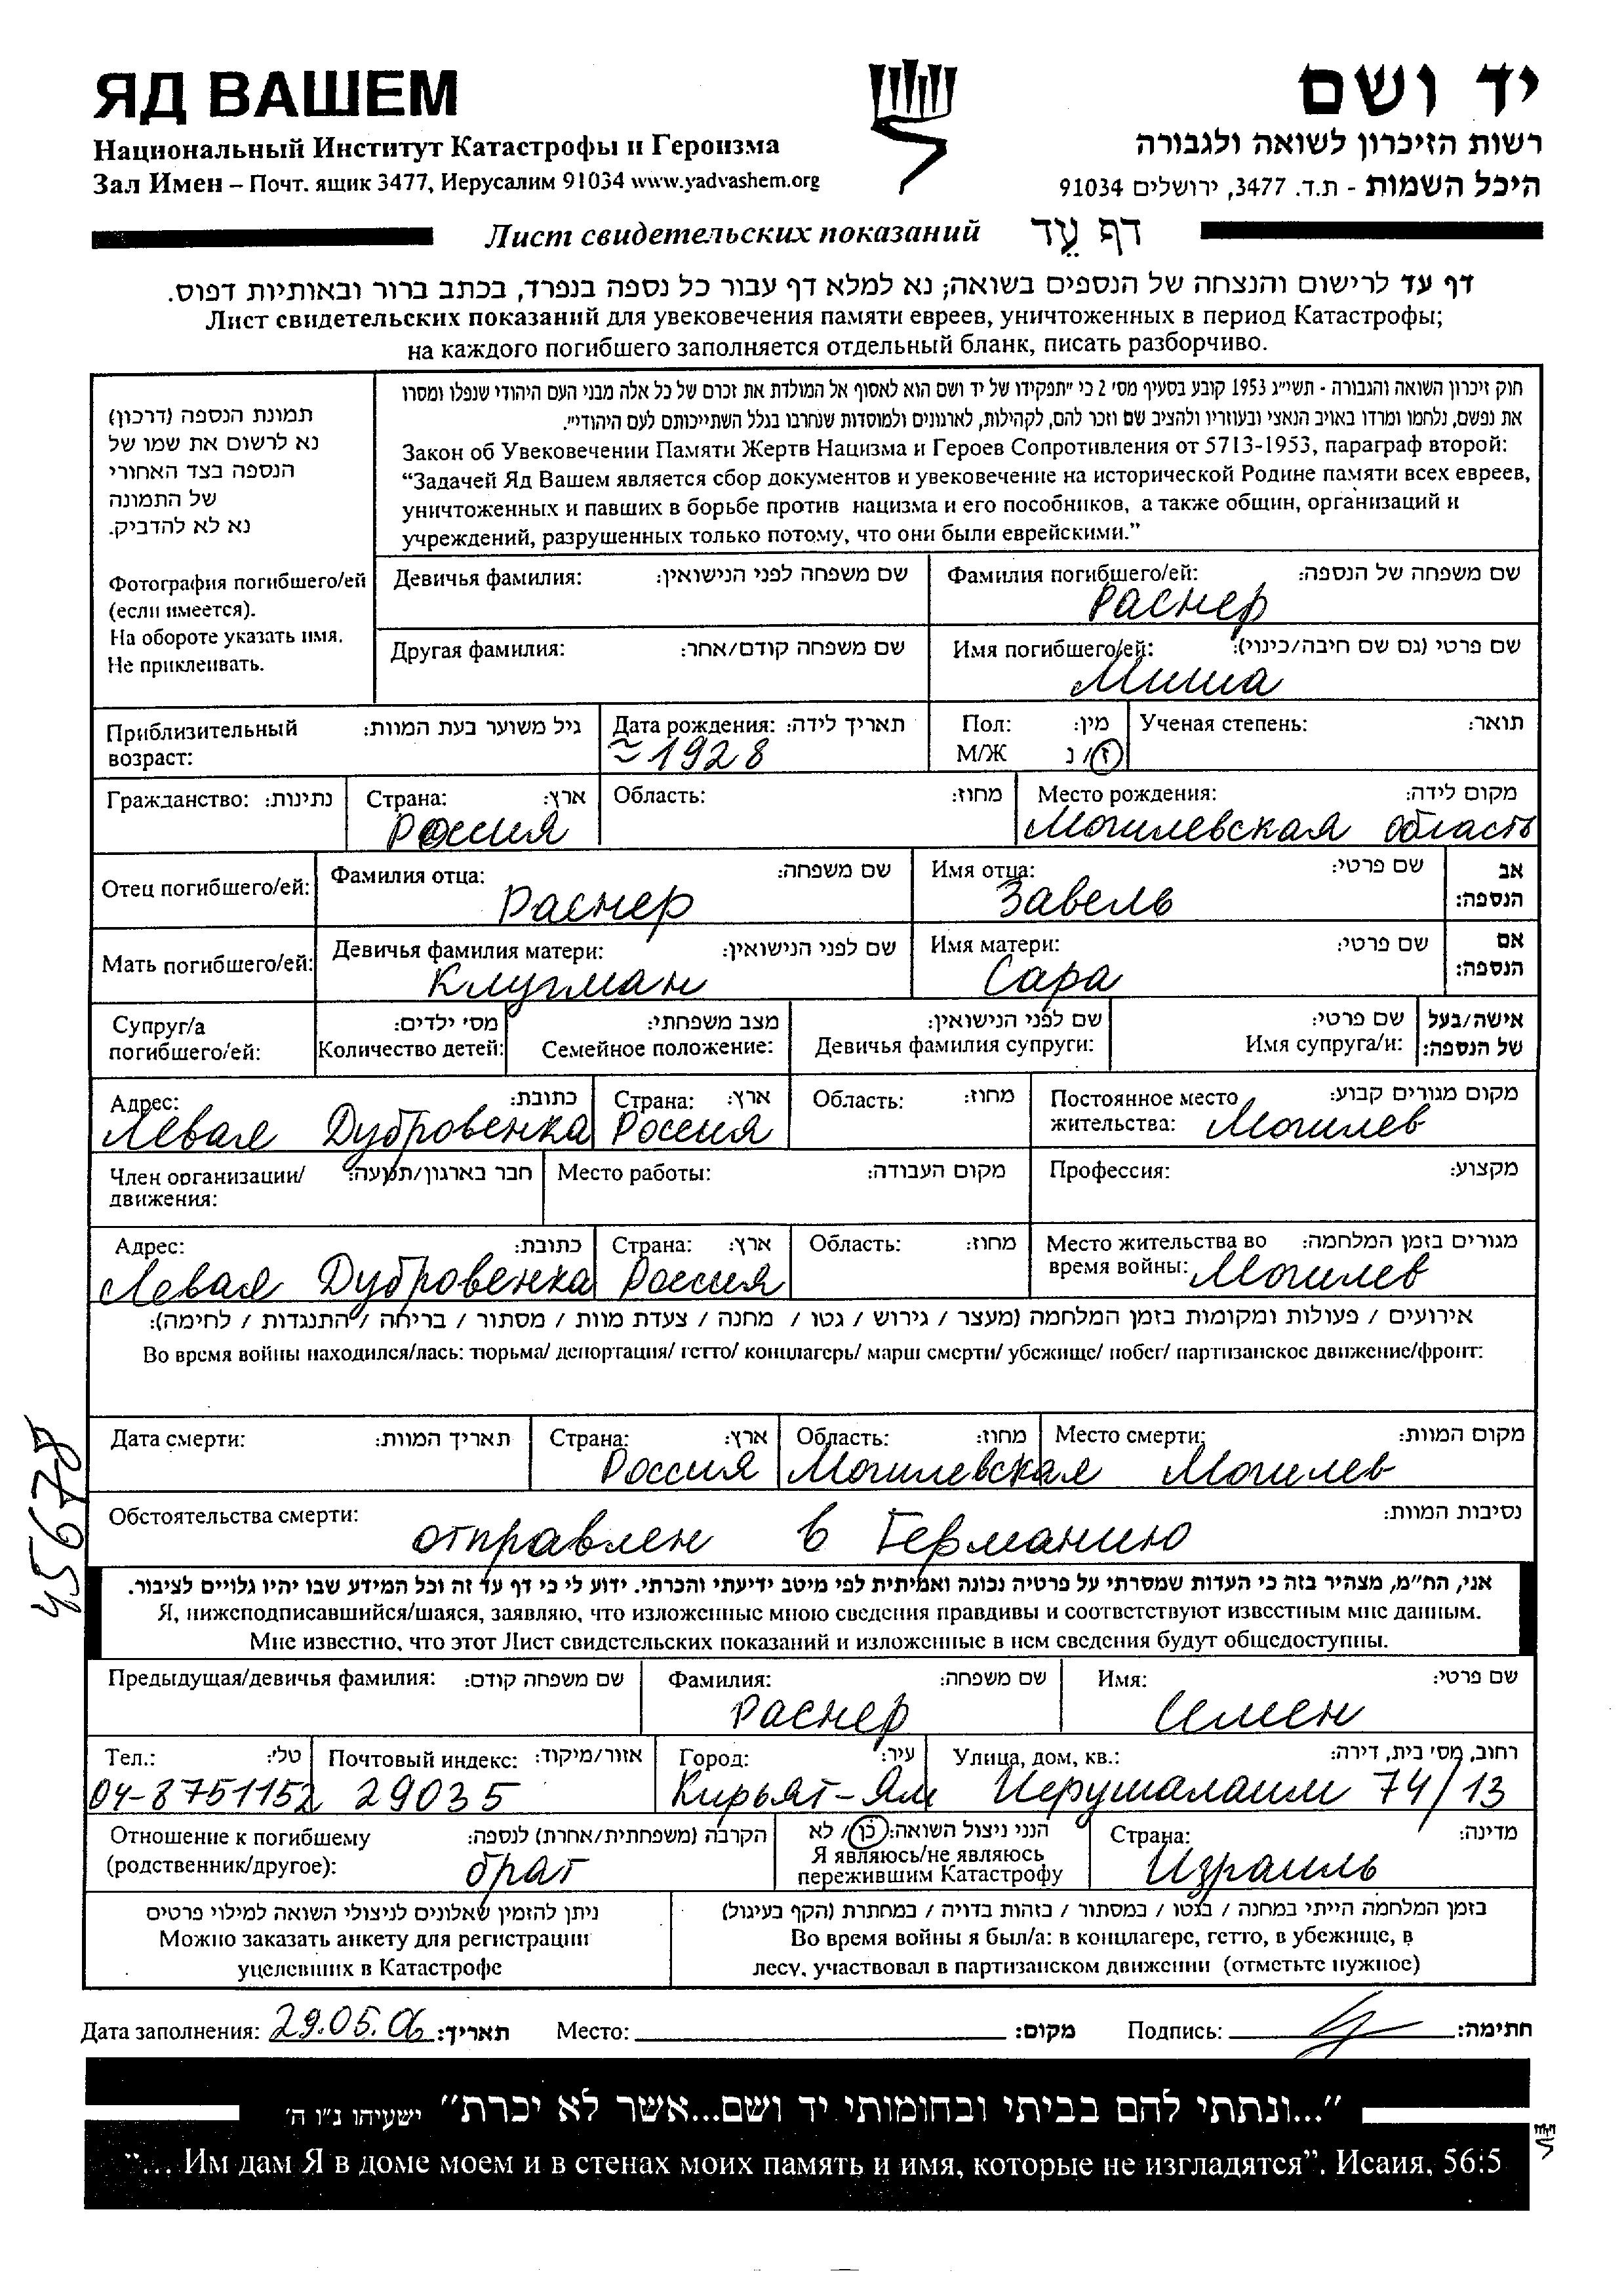 ЯД ВАШЕМ
יד ושם
Национальный Институт Катастрофы и Героизма
רשות הזיכרון לשואה ולגבורה
Зал Имен – Почт. ящик 3477, Иерусалим 91034 www.yadvashem.org
היכל השמות - ת.ד. 3477, ירושלים 91034
Лист свидетельских показаний דף עֵד
דף עד לרישום והנצחה של הנספים בשואה; נא למלא דף עבור כל נספה בנפרד, בכתב ברור ובאותיות דפוס.
Лист свидетельских показаний для увековечения памяти евреев, уничтоженных в период Катастрофы;
на каждого погибшего заполняется отдельный бланк, писать разборчиво.
תמונת הנספה (דרכון)
נא לרשום את שמו של
הנספה בצד האחורי
של התמונה
נא לא להדביק.
Фотография погибшего/ей
(если имеется).
На обороте указать имя.
Не приклеивать.
חוק זיכרון השואה והגבורה - תשי״ג 1953 קובע בסעיף מס׳ 2 כי ״תפקידו של יד ושם הוא לאסוף אל המולדת את זכרם של כל אלה מבני העם היהודי שנפלו ומסרו
את נפשם, נלחמו ומרדו באויב הנאצי ובעוזריו ולהציב שם וזכר להם, לקהילות, לארגונים ולמוסדות שנחרבו בגלל השתייכותם לעם היהודי״.
Закон об Увековечении Памяти Жертв Нацизма и Героев Сопротивления от 5713-1953, параграф второй:
“Задачей Яд Вашем является сбор документов и увековечение на исторической Родине памяти всех евреев,
уничтоженных и павших в борьбе против нацизма и его пособников, а также общин, организаций и
учреждений, разрушенных только потому, что они были еврейскими.”
Девичья фамилия: שם משפחה לפני הנישואין:
Фамилия погибшего/ей: שם משפחה של הנספה:
Раснер
Другая фамилия: שם משפחה קודם/אחר:
Имя погибшего/ей: שם פרטי (גם שם חיבה/כינוי):
Миша
Приблизительный возраст: גיל משוער בעת המוות:
Дата рождения: תאריך לידה:
≈ 1928
Пол: מין:
М/Ж ז / נ
Ученая степень: תואר:
Гражданство: נתינות:
Страна: ארץ:
Россия
Область: מחוז:
Место рождения: מקום לידה:
Могилевская область
Отец погибшего/ей:
Фамилия отца: שם משפחה:
Раснер
Имя отца: שם פרטי:
Завель
אב הנספה:
Мать погибшего/ей:
Девичья фамилия матери: שם לפני הנישואין:
Клугман
Имя матери: שם פרטי:
Сара
אם הנספה:
Супруг/а погибшего/ей:
מס׳ ילדים: Количество детей:
מצב משפחתי: Семейное положение:
שם לפני הנישואין: Девичья фамилия супруги:
שם פרטי: Имя супруга/и:
אישה/בעל של הנספה:
Адрес: כתובת:
Левая Дубровенка
Страна: ארץ:
Россия
Область: מחוז:
Постоянное место жительства: מקום מגורים קבוע:
Могилев
Член организации/движения: חבר בארגון/תנועה:
Место работы: מקום העבודה:
Профессия: מקצוע:
Адрес: כתובת:
Левая Дубровенка
Страна: ארץ:
Россия
Область: מחוז:
Место жительства во время войны: מגורים בזמן המלחמה:
Могилев
אירועים / פעולות ומקומות בזמן המלחמה (מעצר / גירוש / גטו / מחנה / צעדת מוות / מסתור / בריחה / התנגדות / לחימה):
Во время войны находился/лась: тюрьма/ депортация/ гетто/ концлагерь/ марш смерти/ убежище/ побег/ партизанское движение/фронт:
Дата смерти: תאריך המוות:
Страна: ארץ:
Россия
Область: מחוז:
Могилевская
Место смерти: מקום המוות:
Могилев
Обстоятельства смерти: נסיבות המוות:
отправлен в Германию
45678
אני, הח״מ, מצהיר בזה כי העדות שמסרתי על פרטיה נכונה ואמיתית לפי מיטב ידיעתי והכרתי. ידוע לי כי דף עד זה וכל המידע שבו יהיו גלויים לציבור.
Я, нижеподписавшийся/шаяся, заявляю, что изложенные мною сведения правдивы и соответствуют известным мне данным.
Мне известно, что этот Лист свидетельских показаний и изложенные в нем сведения будут общедоступны.
Предыдущая/девичья фамилия: שם משפחה קודם:
Фамилия: שם משפחה:
Раснер
Имя: שם פרטי:
Семен
Тел.: טלי:
04-8751152
Почтовый индекс: אזור/מיקוד:
29035
Город: עיר:
Кирьят-Ям
Улица, дом, кв.: רחוב, מס׳ בית, דירה:
Иерушалаим 74/13
Отношение к погибшему (родственник/другое): הקרבה (משפחתית/אחרת) לנספה:
брат
הנני ניצול השואה: כן / לא
Я являюсь/не являюсь
пережившим Катастрофу
Страна: מדינה:
Израиль
ניתן להזמין שאלונים לניצולי השואה למילוי פרטים
Можно заказать анкету для регистрации
уцелевших в Катастрофе
בזמן המלחמה הייתי במחנה / בגטו / במסתור / בזהות בדויה / במחתרת (הקף בעיגול)
Во время войны я был/а: в концлагере, гетто, в убежище, в
лесу, участвовал в партизанском движении (отметьте нужное)
Дата заполнения: 29.05.06 תאריך: Место: מקום: Подпись: חתימה:
״...ונתתי להם בביתי ובחומותי יד ושם...אשר לא יכרת״ ישעיהו נ״ו ה׳
”... Им дам Я в доме моем и в стенах моих память и имя, которые не изгладятся”. Исаия, 56:5